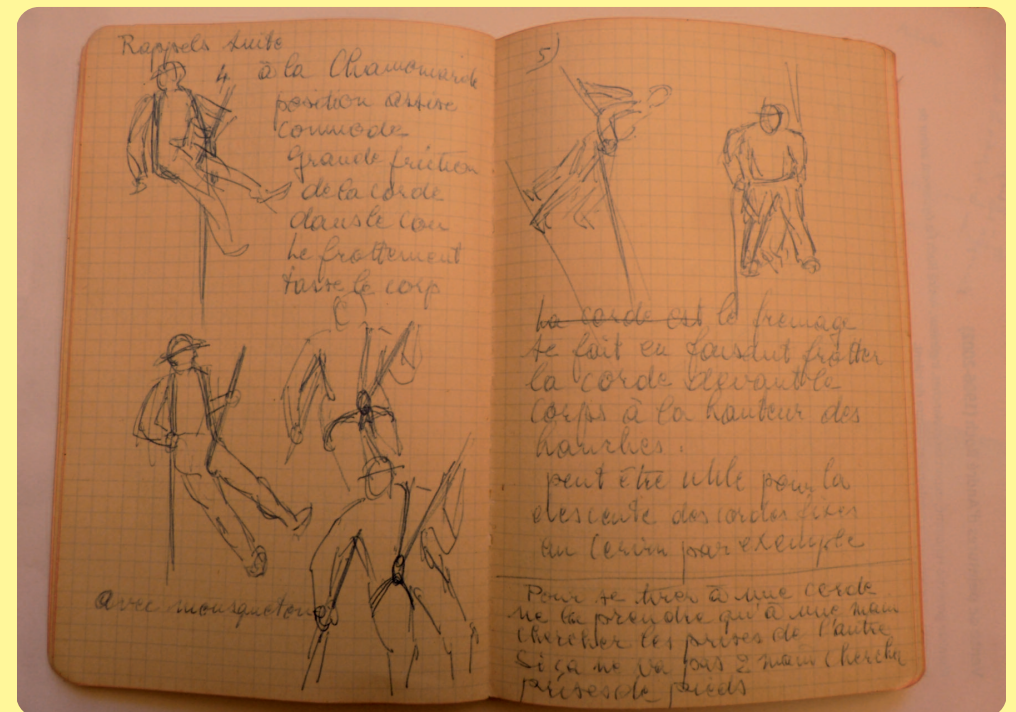 Rappels suite
4. à la Chamoniarde
position assise
commode
grande friction
de la corde
dans le cou
Le frottement
tasse le corp
avec mousqueton
5)
La corde est le freinage
se fait en faisant frotter
la corde devant le
corps à la hauteur des
hanches.
peut être utile pour la
descente des cordes fixes
au Cervin par exemple
Pour se tirer à une corde
ne la prendre qu'à une main
chercher les prises de l'autre
Si ça ne va pas 2 main chercher
prises de pieds